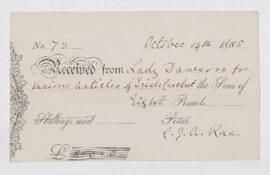 No 72 October 14th 1885
Received from Lady Dawson for
various articles of Irish Crochet the Sum of
Eight Pounds
Shillings and Pence
C. J. A. Rae
£